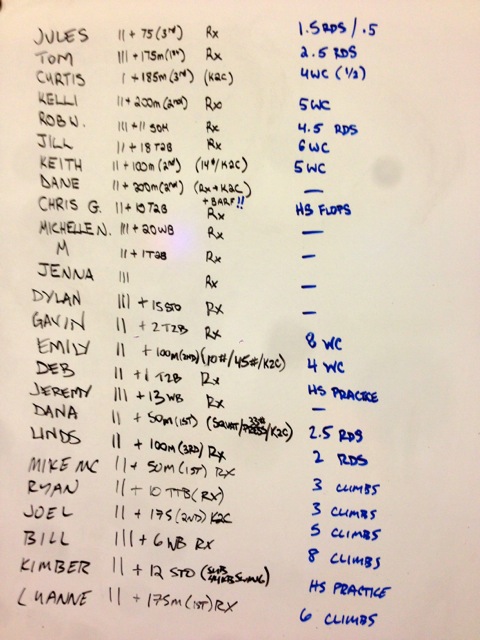 JULES II + 75 (3rd) Rx 1.5 RDS / .5
TOM III + 175m (1st) Rx 2.5 RDS
CURTIS I + 185m (3rd) (K2C) 4WC (1/2)
KELLI II + 200m (2nd) Rx 5WC
ROB W. III + 11 SDH Rx 4.5 RDS
JILL II + 18 T2B Rx 6WC
KEITH II + 100m (2nd) (14#/K2C) 5WC
DANE II + 200m (2nd) (Rx + K2C) —
+ BARF!!
CHRIS G. II + 10 T2B Rx HS FLOPS
MICHELLE N. III + 20 WB Rx —
M II + 1 T2B Rx —
JENNA III Rx —
DYLAN III + 15 STO Rx —
GAVIN II + 2 T2B Rx 8 WC
EMILY II + 100m (2ND) (10#/45#/K2C) 4 WC
DEB II + 1 T2B Rx HS PRACTICE
JEREMY III + 13 WB Rx —
DANA II + 50m (1ST) (SQUAT/PRESS/K2C) 2.5 RDS
LINDS II + 100m (3RD) Rx 2 RDS
MIKE MC II + 50m (1ST) RX 3 CLIMBS
RYAN II + 10 TTB (RX) 3 CLIMBS
JOEL II + 175 (2ND) K2C 5 CLIMBS
BILL III + 6 WB RX 8 CLIMBS
KIMBER II + 12 STO (SUB KB SWING) HS PRACTICE
LUANNE II + 175m (1ST) RX 6 CLIMBS